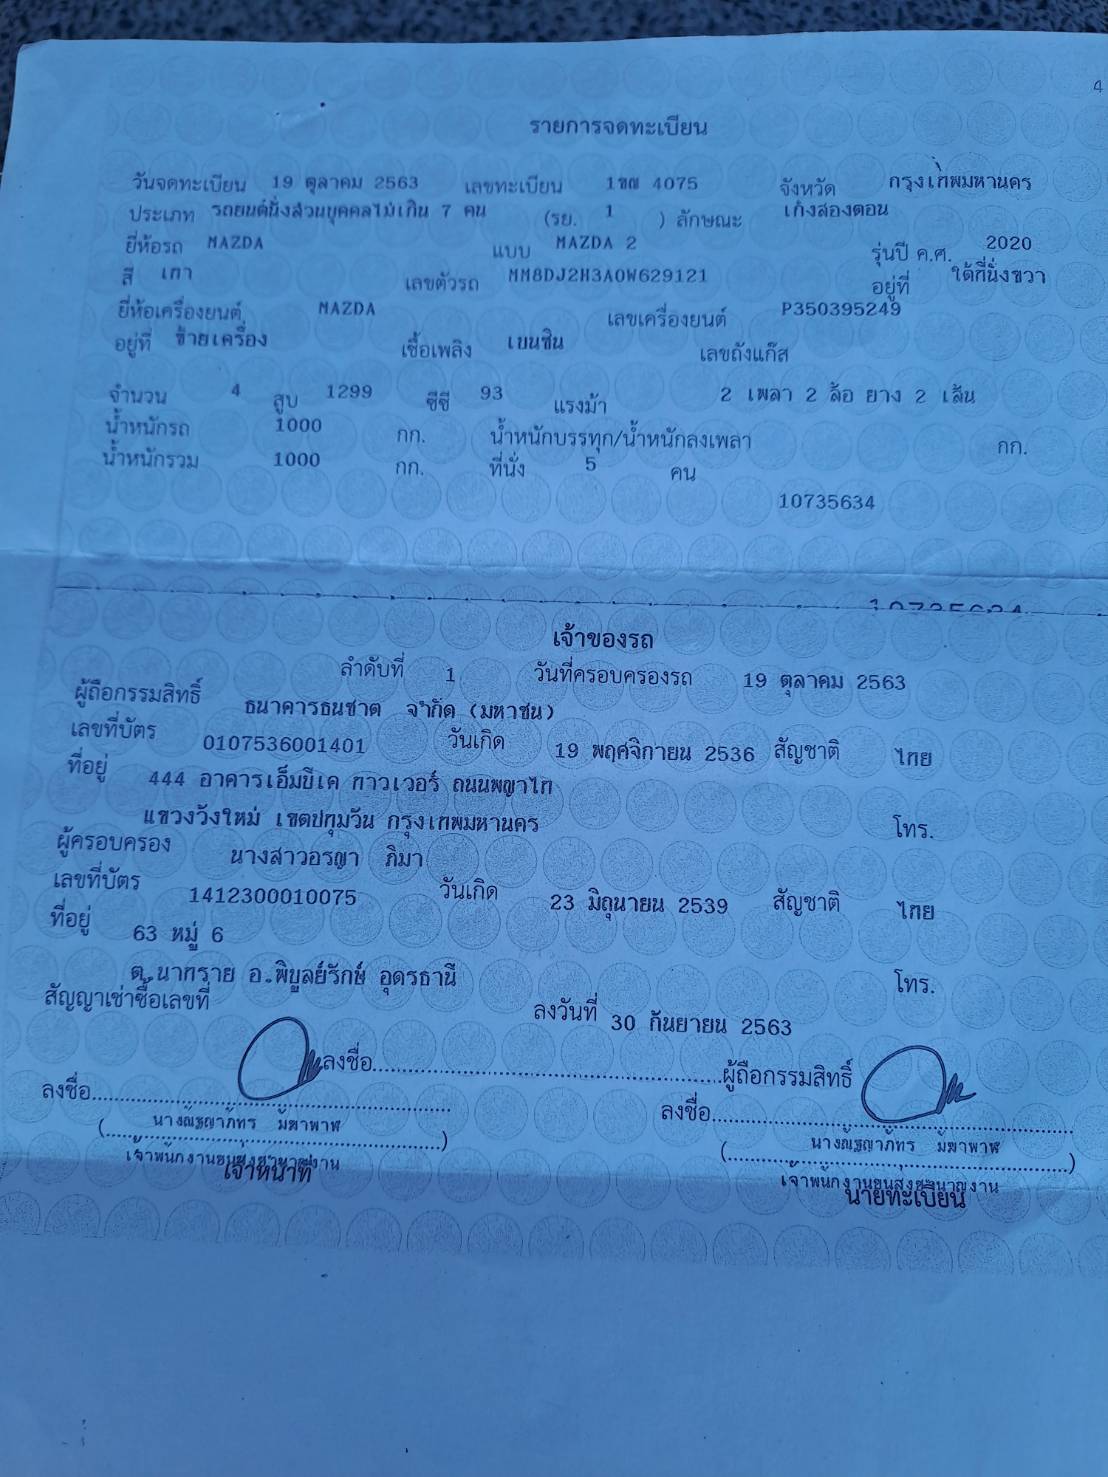 4
รายการจดทะเบียน
วันจดทะเบียน 19 ตุลาคม 2563 เลขทะเบียน 1ขณ 4075 จังหวัด กรุงเทพมหานคร
ประเภท รถยนต์นั่งส่วนบุคคลไม่เกิน 7 คน (รย. 1 ) ลักษณะ เก๋งสองตอน
ยี่ห้อรถ MAZDA แบบ MAZDA 2 รุ่นปี ค.ศ. 2020
สี เทา เลขตัวรถ MM8DJ2H3A0W629121 อยู่ที่ ใต้ที่นั่งขวา
ยี่ห้อเครื่องยนต์ MAZDA เลขเครื่องยนต์ P350395249
อยู่ที่ ซ้ายเครื่อง เชื้อเพลิง เบนซิน เลขถังแก๊ส
จำนวน 4 สูบ 1299 ซีซี 93 แรงม้า 2 เพลา 2 ล้อ ยาง 2 เส้น
น้ำหนักรถ 1000 กก. น้ำหนักบรรทุก/น้ำหนักลงเพลา กก.
น้ำหนักรวม 1000 กก. ที่นั่ง 5 คน
10735634
10735634
เจ้าของรถ
ลำดับที่ 1 วันที่ครอบครองรถ 19 ตุลาคม 2563
ผู้ถือกรรมสิทธิ์ ธนาคารธนชาต จำกัด (มหาชน)
เลขที่บัตร 0107536001401 วันเกิด 19 พฤศจิกายน 2536 สัญชาติ ไทย
ที่อยู่ 444 อาคารเอ็มบีเค ทาวเวอร์ ถนนพญาไท
แขวงวังใหม่ เขตปทุมวัน กรุงเทพมหานคร โทร.
ผู้ครอบครอง นางสาวอรญา ภิมา
เลขที่บัตร 1412300010075 วันเกิด 23 มิถุนายน 2539 สัญชาติ ไทย
ที่อยู่ 63 หมู่ 6
ต.นาทราย อ.พิบูลย์รักษ์ อุดรธานี โทร.
สัญญาเช่าซื้อเลขที่ ลงวันที่ 30 กันยายน 2563
ลงชื่อ........................................ผู้ถือกรรมสิทธิ์
ลงชื่อ........................................ ลงชื่อ........................................
(นางณัฐญาภัทร มัฆาพาฬ) (นางณัฐญาภัทร มัฆาพาฬ)
เจ้าพนักงานขนส่งชำนาญงาน เจ้าพนักงานขนส่งชำนาญงาน
เจ้าหน้าที่ นายทะเบียน